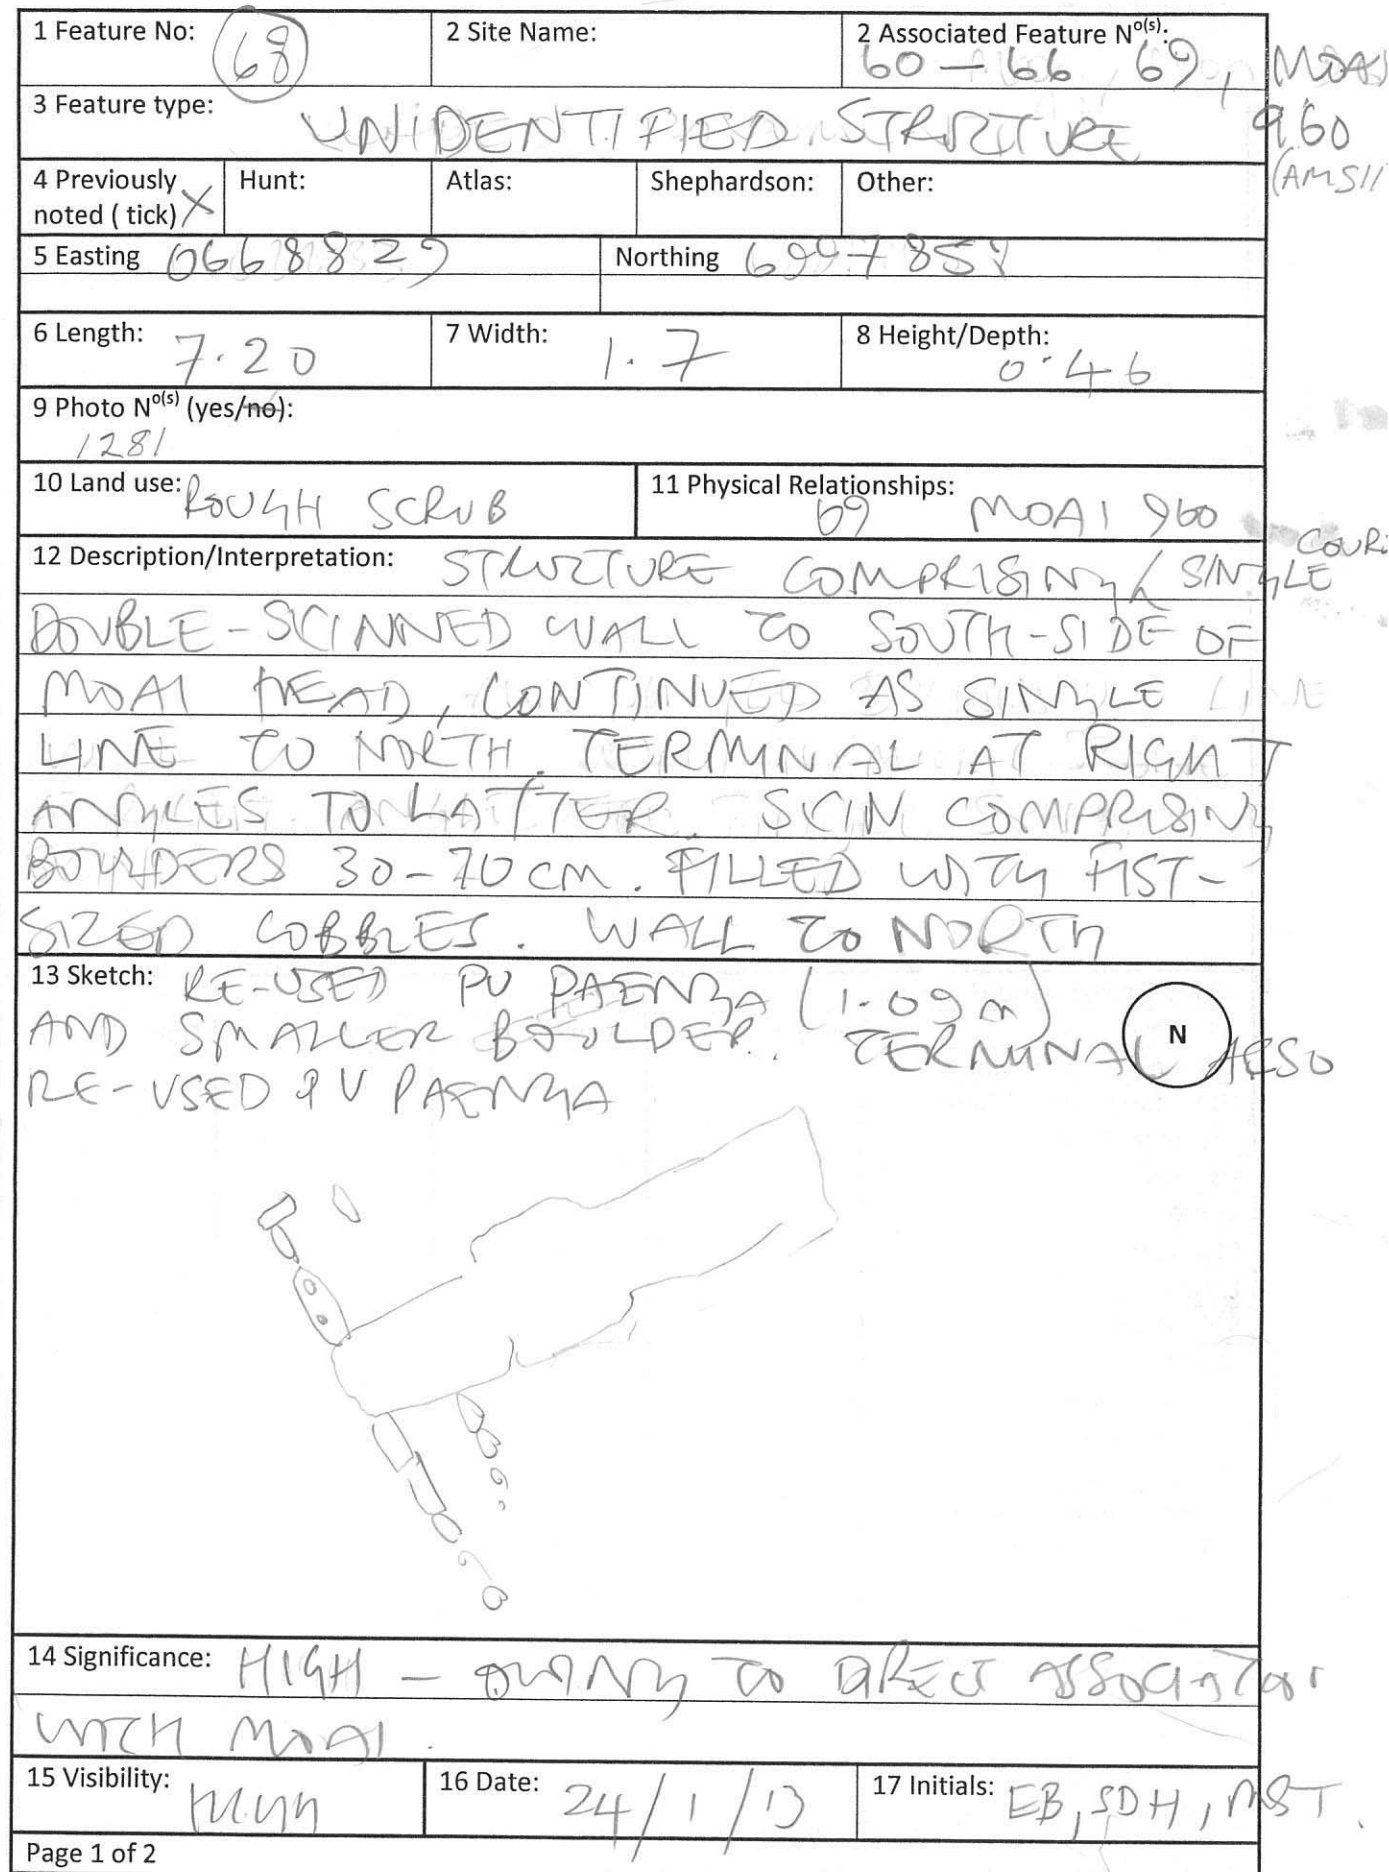 1 Feature No: 68
2 Site Name:
2 Associated Feature No(s):
60 - 66 69, MOAI
3 Feature type:
UNIDENTIFIED STRUCTURE 960
(AMS11
4 Previously noted ( tick) X
Hunt:
Atlas:
Shephardson:
Other:
5 Easting 0668829
Northing
6 Length: 7.20
7 Width: 1.7
8 Height/Depth: 0.46
9 Photo No(s) (yes/no):
1281
10 Land use: ROUGH SCRUB
11 Physical Relationships:
69 MOAI 960
12 Description/Interpretation: STRUCTURE COMPRISING / SINGLE
DOUBLE-SCINNED WALL TO SOUTH-SIDE OF
MOAI HEAD, CONTINUED AS SINGLE
LINE TO NORTH. TERMINAL AT RIGHT
ANGLES TO LATTER. SCIN COMPRISING
BOULDERS 30-70 CM. FILLED WITH FIST-
SIZED COBBLES. WALL TO NORTH
13 Sketch: RE-USED PU PAENGA (1.09m)
AND SMALLER BOULDER. TERMINAL ALSO
RE-USED PU PAENGA
N
14 Significance: HIGH - OWING TO DIRECT ASSOCIATION
WITH MOAI.
15 Visibility: HIGH
16 Date: 24/1/13
17 Initials: EB, SDH, MST.
Page 1 of 2